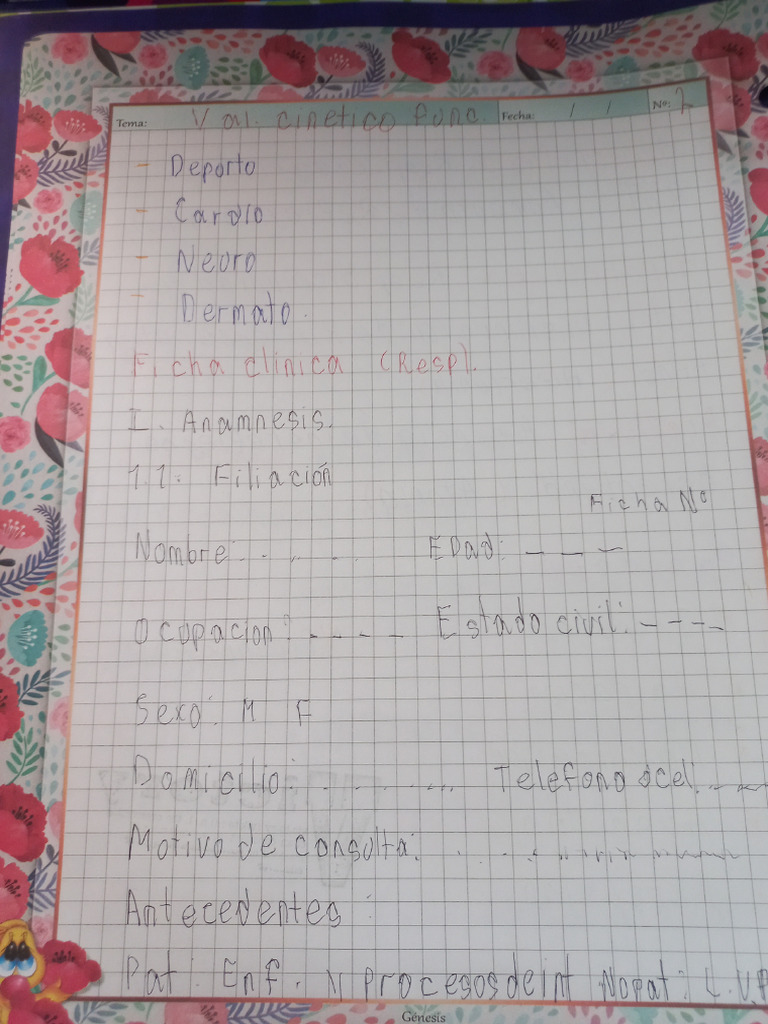 Tema: Val. cinetico func. Fecha: / / No: 2
- Deporto
- Cardio
- Neuro
- Dermato.
Ficha clinica (Resp).
I. Anamnesis.
1.1. Filiación
Ficha Nº
Nombre: . . - . Edad: - - -
Ocupacion: - - - - Estado civil: - - - -
Sexo: M F
Domicilio: . . . . . . Telefono ócel: - -
Motivo de consulta:
Antecedentes:
Pat: Enf. y Procesos de int Nopat: C.V.P
Génesis